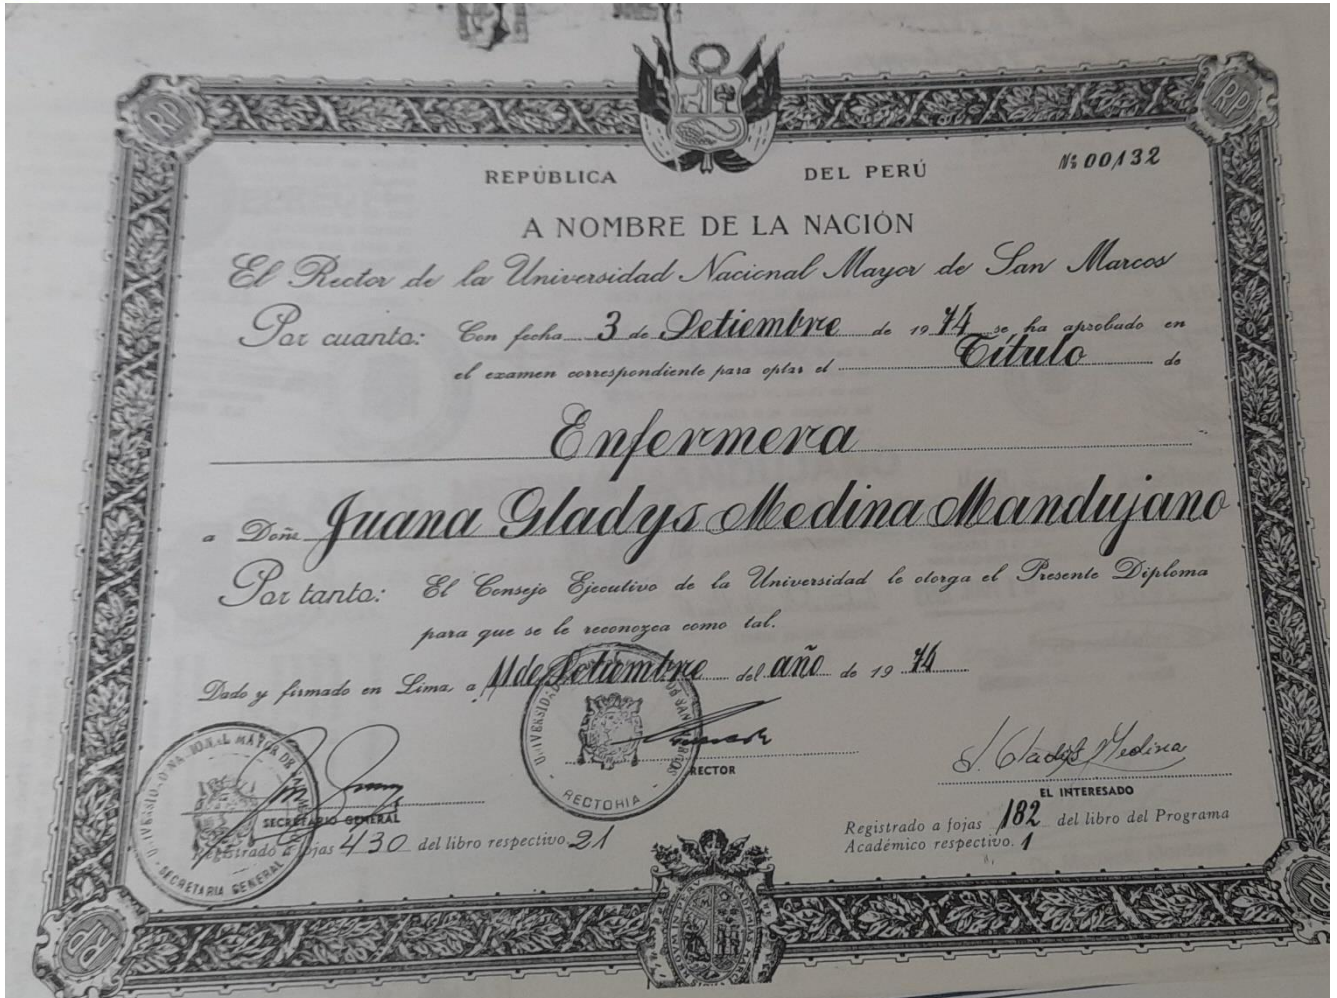 REPÚBLICA DEL PERÚ
Nº 00132
A NOMBRE DE LA NACIÓN
El Rector de la Universidad Nacional Mayor de San Marcos
Por cuanto: Con fecha 3 de Setiembre de 1974 se ha aprobado en
el examen correspondiente para optar el Título de
Enfermera
a Doña Juana Gladys Medina Mandujano
Por tanto: El Consejo Ejecutivo de la Universidad le otorga el Presente Diploma
para que se le reconozca como tal.
Dado y firmado en Lima, a 11 de Setiembre del año de 1974
RECTOR
RECTORIA
J. Gladys Medina
EL INTERESADO
SECRETARIO GENERAL
SECRETARIA GENERAL
Registrado a fojas 430 del libro respectivo. 21
Registrado a fojas 182 del libro del Programa
Académico respectivo. 1
RP
RP
RP
RP